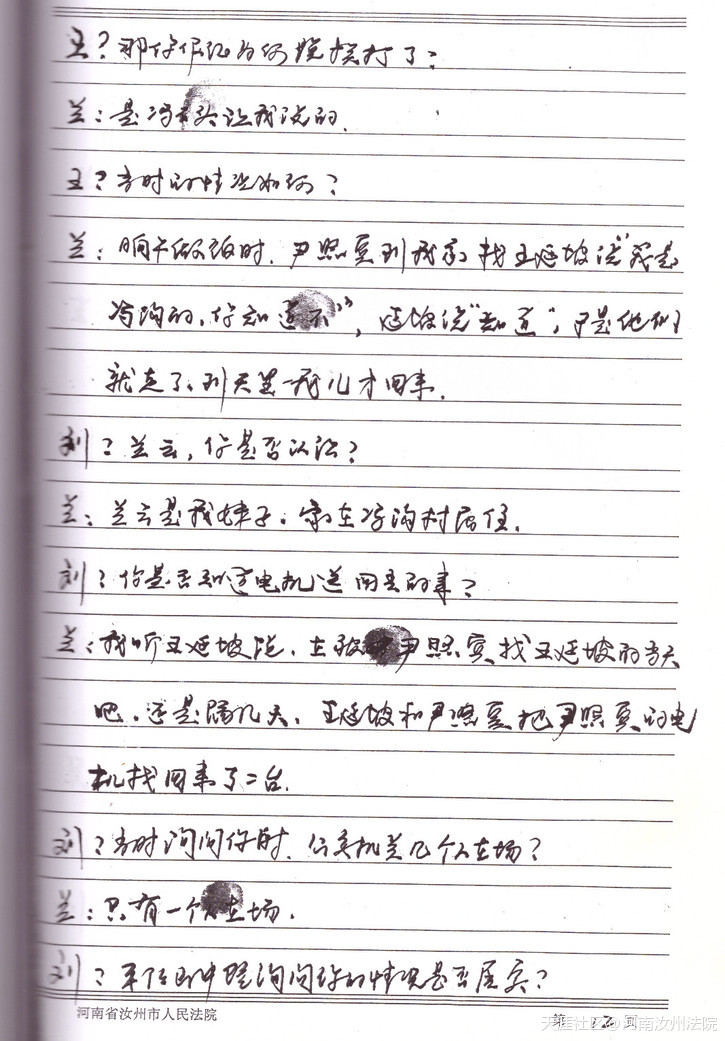 王？那你作记为何说挨打了？
兰：是冯 让我说的.
王？当时的情况如何？
兰：晌午做饭时.尹照宾到我家找王延坡说“我是
冯沟的,你知道不”,延坡说“知道”,于是他们
就走了.到天黑 儿才回来.
刘？兰云,你是否认识？
兰：兰云是我妹子.家在冯沟村居住.
刘？你是否知道电机送回去的事？
兰：我听王延坡说. 尹照宾找王延坡的当天
吧.还是隔几天.王延坡和尹照宾把尹照宾的电
机找回来了二台.
刘？当时询问你时.公安机关几个人在场？
兰：只有一个人在场.
刘？ 询问你的情况是否属实？
河南省汝州市人民法院
第 2 页
天涯社区@河南汝州法院